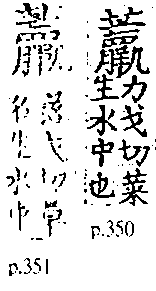 力戈切菜
生水中也
p.350
落戈切草
名生水中
p.351